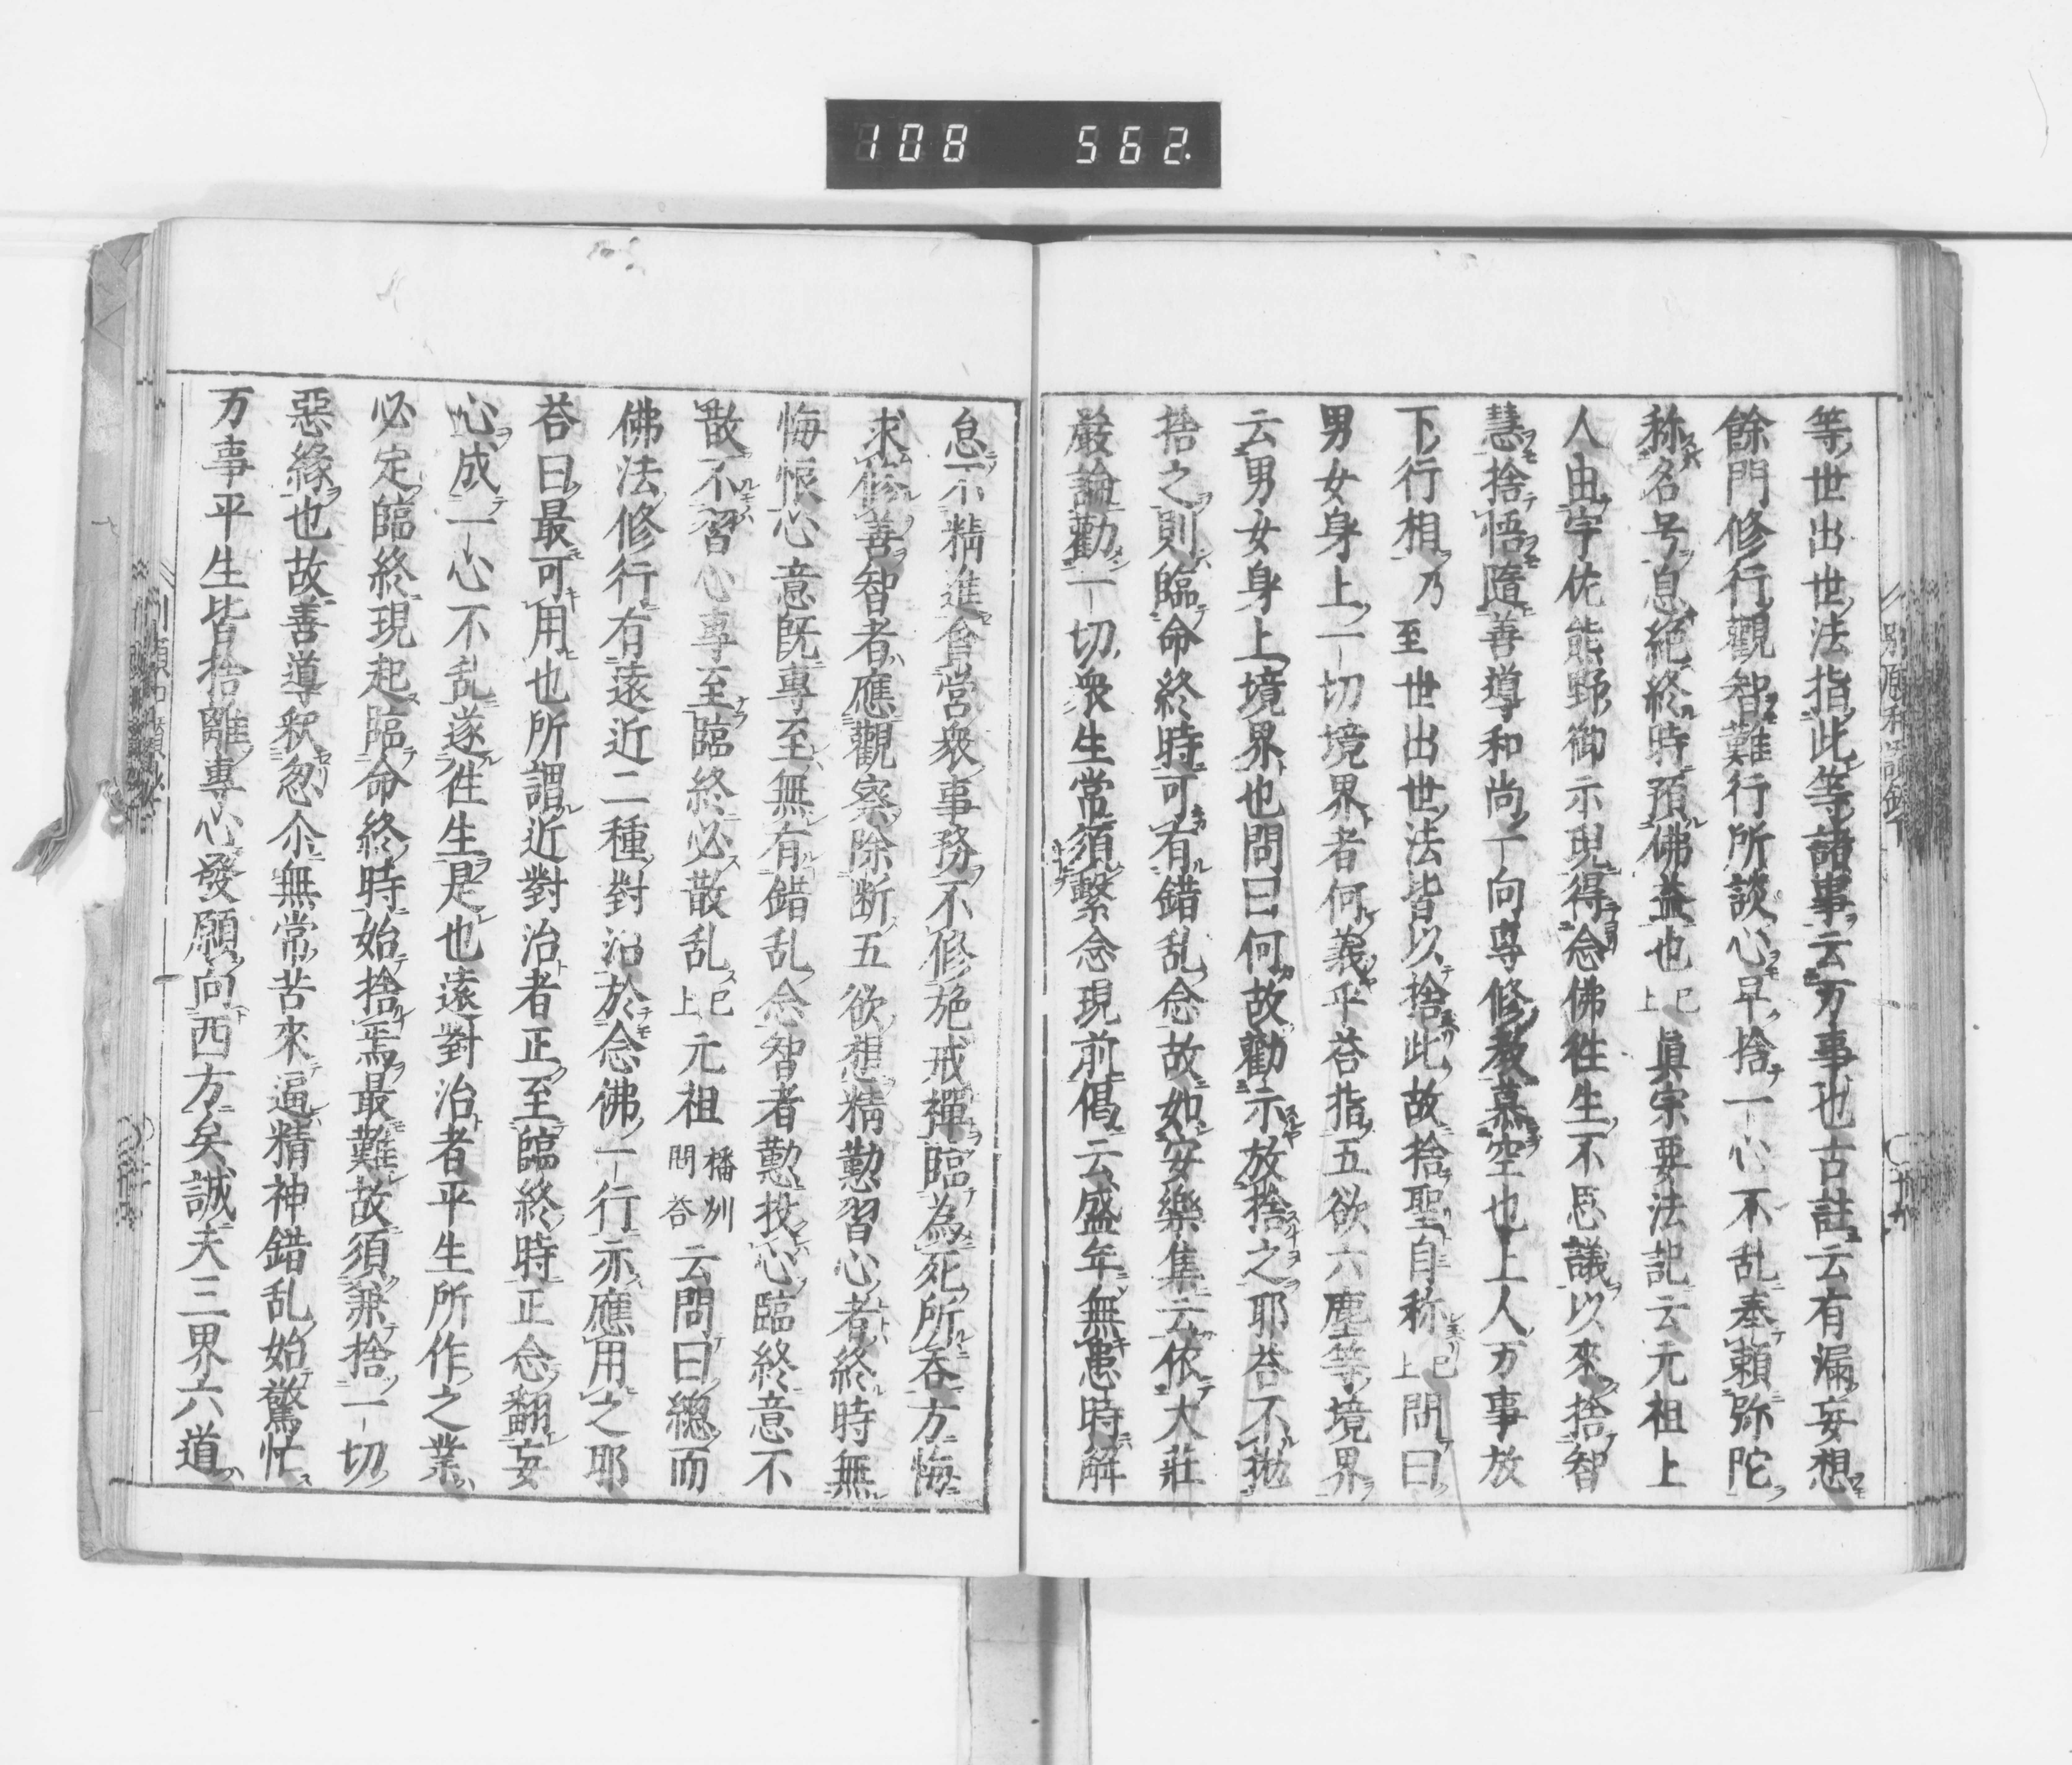 108 562.
等世出世法指此等諸事云万事也古註云有漏妄想
餘門修行觀智難行所談心早捨一心不乱奉頼弥陀
称名号息絶終時預佛益也已上眞宗要法記云元祖上
人由宇佐熊野御示現得念佛徃生不思議以來捨智
慧捨悟隨善導和尚一向専修教慕空也上人万事放
下行相乃至世出世法皆以捨此故捨聖自称已上問曰
男女身上一切境界者何義乎荅指五欲六塵等境界
云男女身上境界也問曰何故勸示放捨之耶荅不抛
捨之則臨命終時可有錯乱念故如安樂集云依大莊
嚴論勸一切衆生常須繫念現前偈云盛年無患時懈
怠不精進貪営衆事務不修施戒禪臨為死所吞方悔
求修善智者應觀察除断五欲想精勤習心者終時無
悔恨心意既專至無有錯乱念智者懃投心臨終意不
散不習心專至臨終必散乱已上元祖播州問荅云問曰總而
佛法修行有遠近二種對治於念佛一行亦應用之耶
荅曰最可用也所謂近對治者正至臨終時正念翻妄
心成一心不乱遂徃生是也遠對治者平生所作之業
必定臨終現起臨命終時始捨焉最難故須兼捨一切
惡緣也故善導釈忽尒無常苦來逼精神錯乱始驚忙
万事平生皆捨離專心發願向西方矣誠夫三界六道